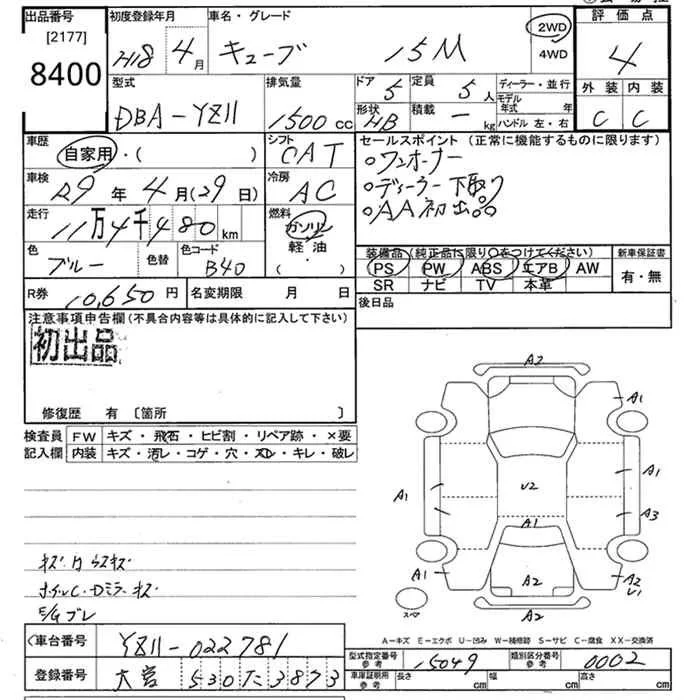 出品番号 初度登録年月 車名・グレード 評価点
[2177] 8400
H18 4月 キューブ 15M 2WD 4WD 4
型式 排気量 ドア 5 定員 5人 ディーラー・並行 外装 内装
DBA-YZ11 1500cc 形状 HB 積載 - kg モデル年式 年 ハンドル 左・右 C C
車歴 シフト セールスポイント (正常に機能するものに限ります)
自家用・( ) CAT ○ワンオーナー
車検 冷房 ○ディーラー下取り
29年4月(29日) AC ○AA初出品
走行 燃料
11万4千480km ガソリン
色 色替 色コード 軽油 装備品 (純正品に限り○をつけてください) 新車保証書
ブルー B40 ( ) PS PW ABS エアB AW 有・無
SR ナビ TV 本革
R券 10,650円 名変期限 月 日 後日品
注意事項申告欄 (不具合内容等は具体的に記入して下さい)
初出品
修復歴 有 〔箇所 〕
検査員 FW キズ・飛石・ヒビ割・リペア跡・×要
記入欄 内装 キズ・汚レ・コゲ・穴・スレ・キレ・破レ
A2
A1
A1
A1
U2
A3
A1
A1
A2
A2
U1
スペア
A2
キズ 凹 ウスキズ
ホイルC・Dミラーキズ
E/Gブレ
A－キズ E－エクボ U－凹み W－補修跡 S－サビ C－腐食 XX－交換済
車台番号 YZ11-022781
型式指定番号 参考 15049 類別区分番号 参考 0002
登録番号 大宮 530 た 3873
車庫証明用 参考 長さ cm 幅 cm 高さ cm